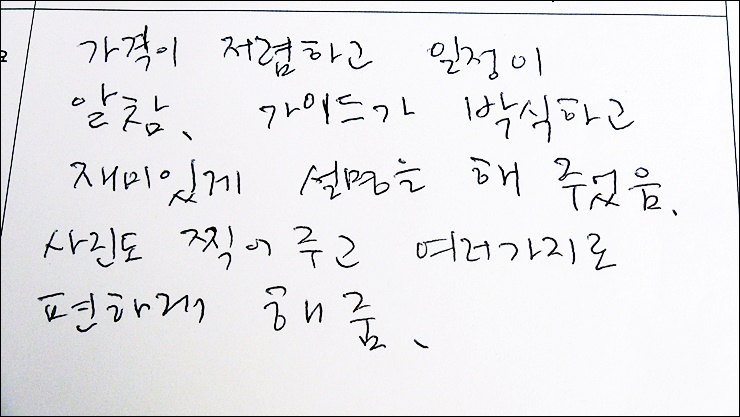 가격이 저렴하고 일정이
알참. 가이드가 박식하고
재미있게 설명을 해 주었음.
사진도 찍어 주고 여러가지로
편하게 해줌.